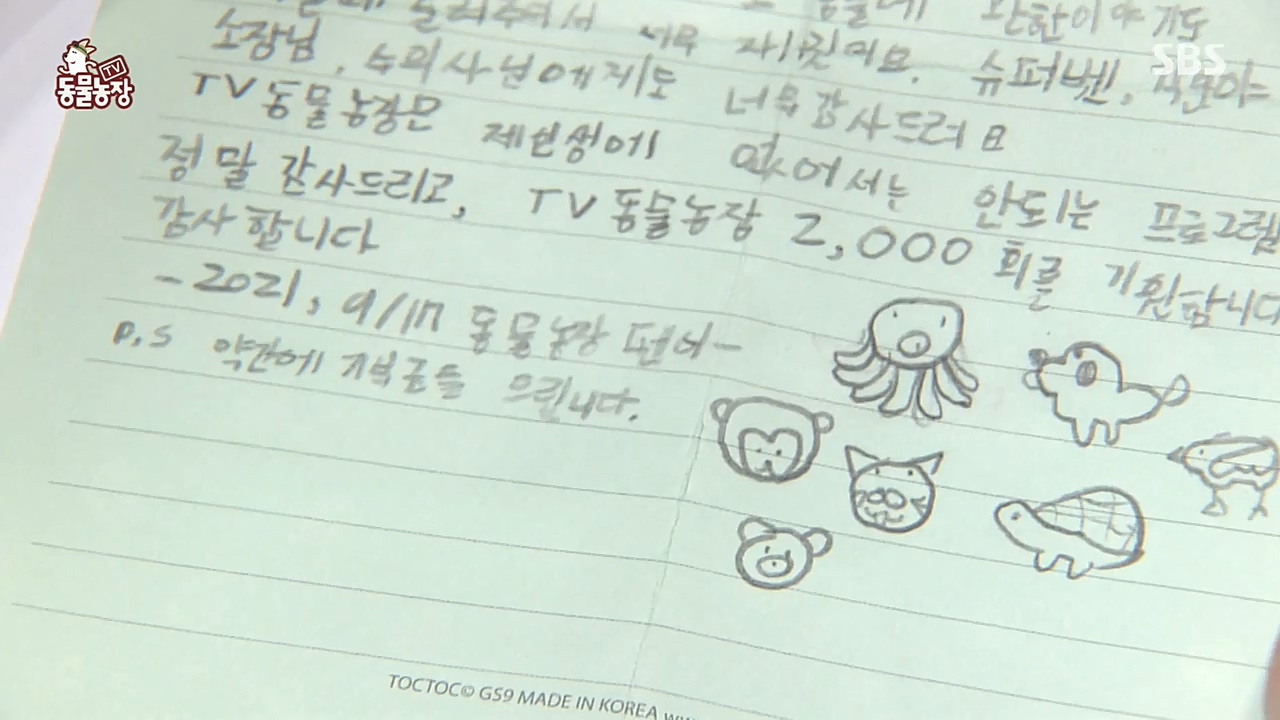 관한이야기도
너무 재밌어요. 슈퍼벳,
소장님, 수의사님에게도 너무감사드려요
TV동물농장은 제인생에 없어서는 안되는 프로그램
정말 감사드리고, TV동물농장 2,000회를 기원합니다
감사합니다
-2021, 9/17 동물농장 팬이-
P.S 약간에 기부금을 드립니다.
TOCTOC© GS9 MADE IN KOREA
TV
동물농장
SBS